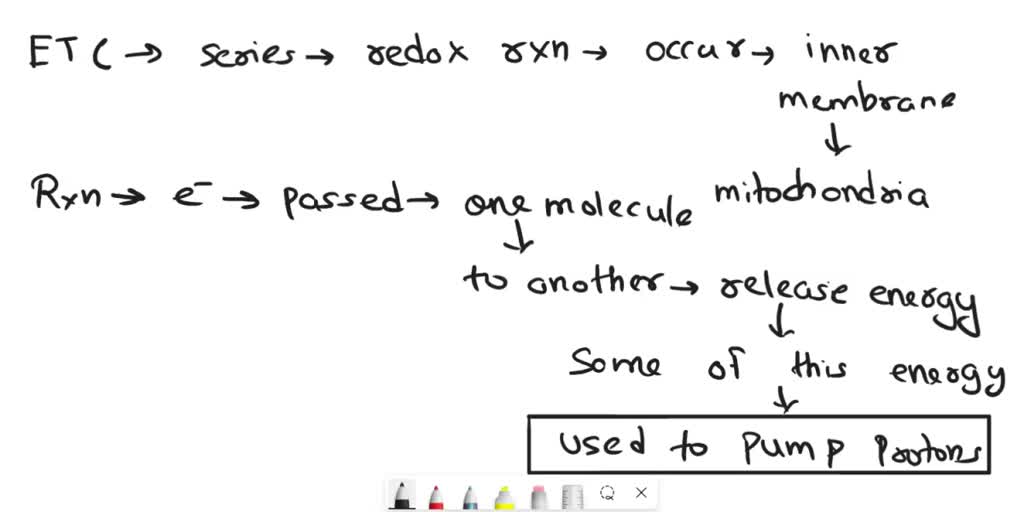 ETC → series → redox rxn → occur → inner
membrane
↓
Rxn → e⁻ → passed → one molecule mitochondria
↓
to another → release energy
↓
Some of this energy
↓
used to pump protons